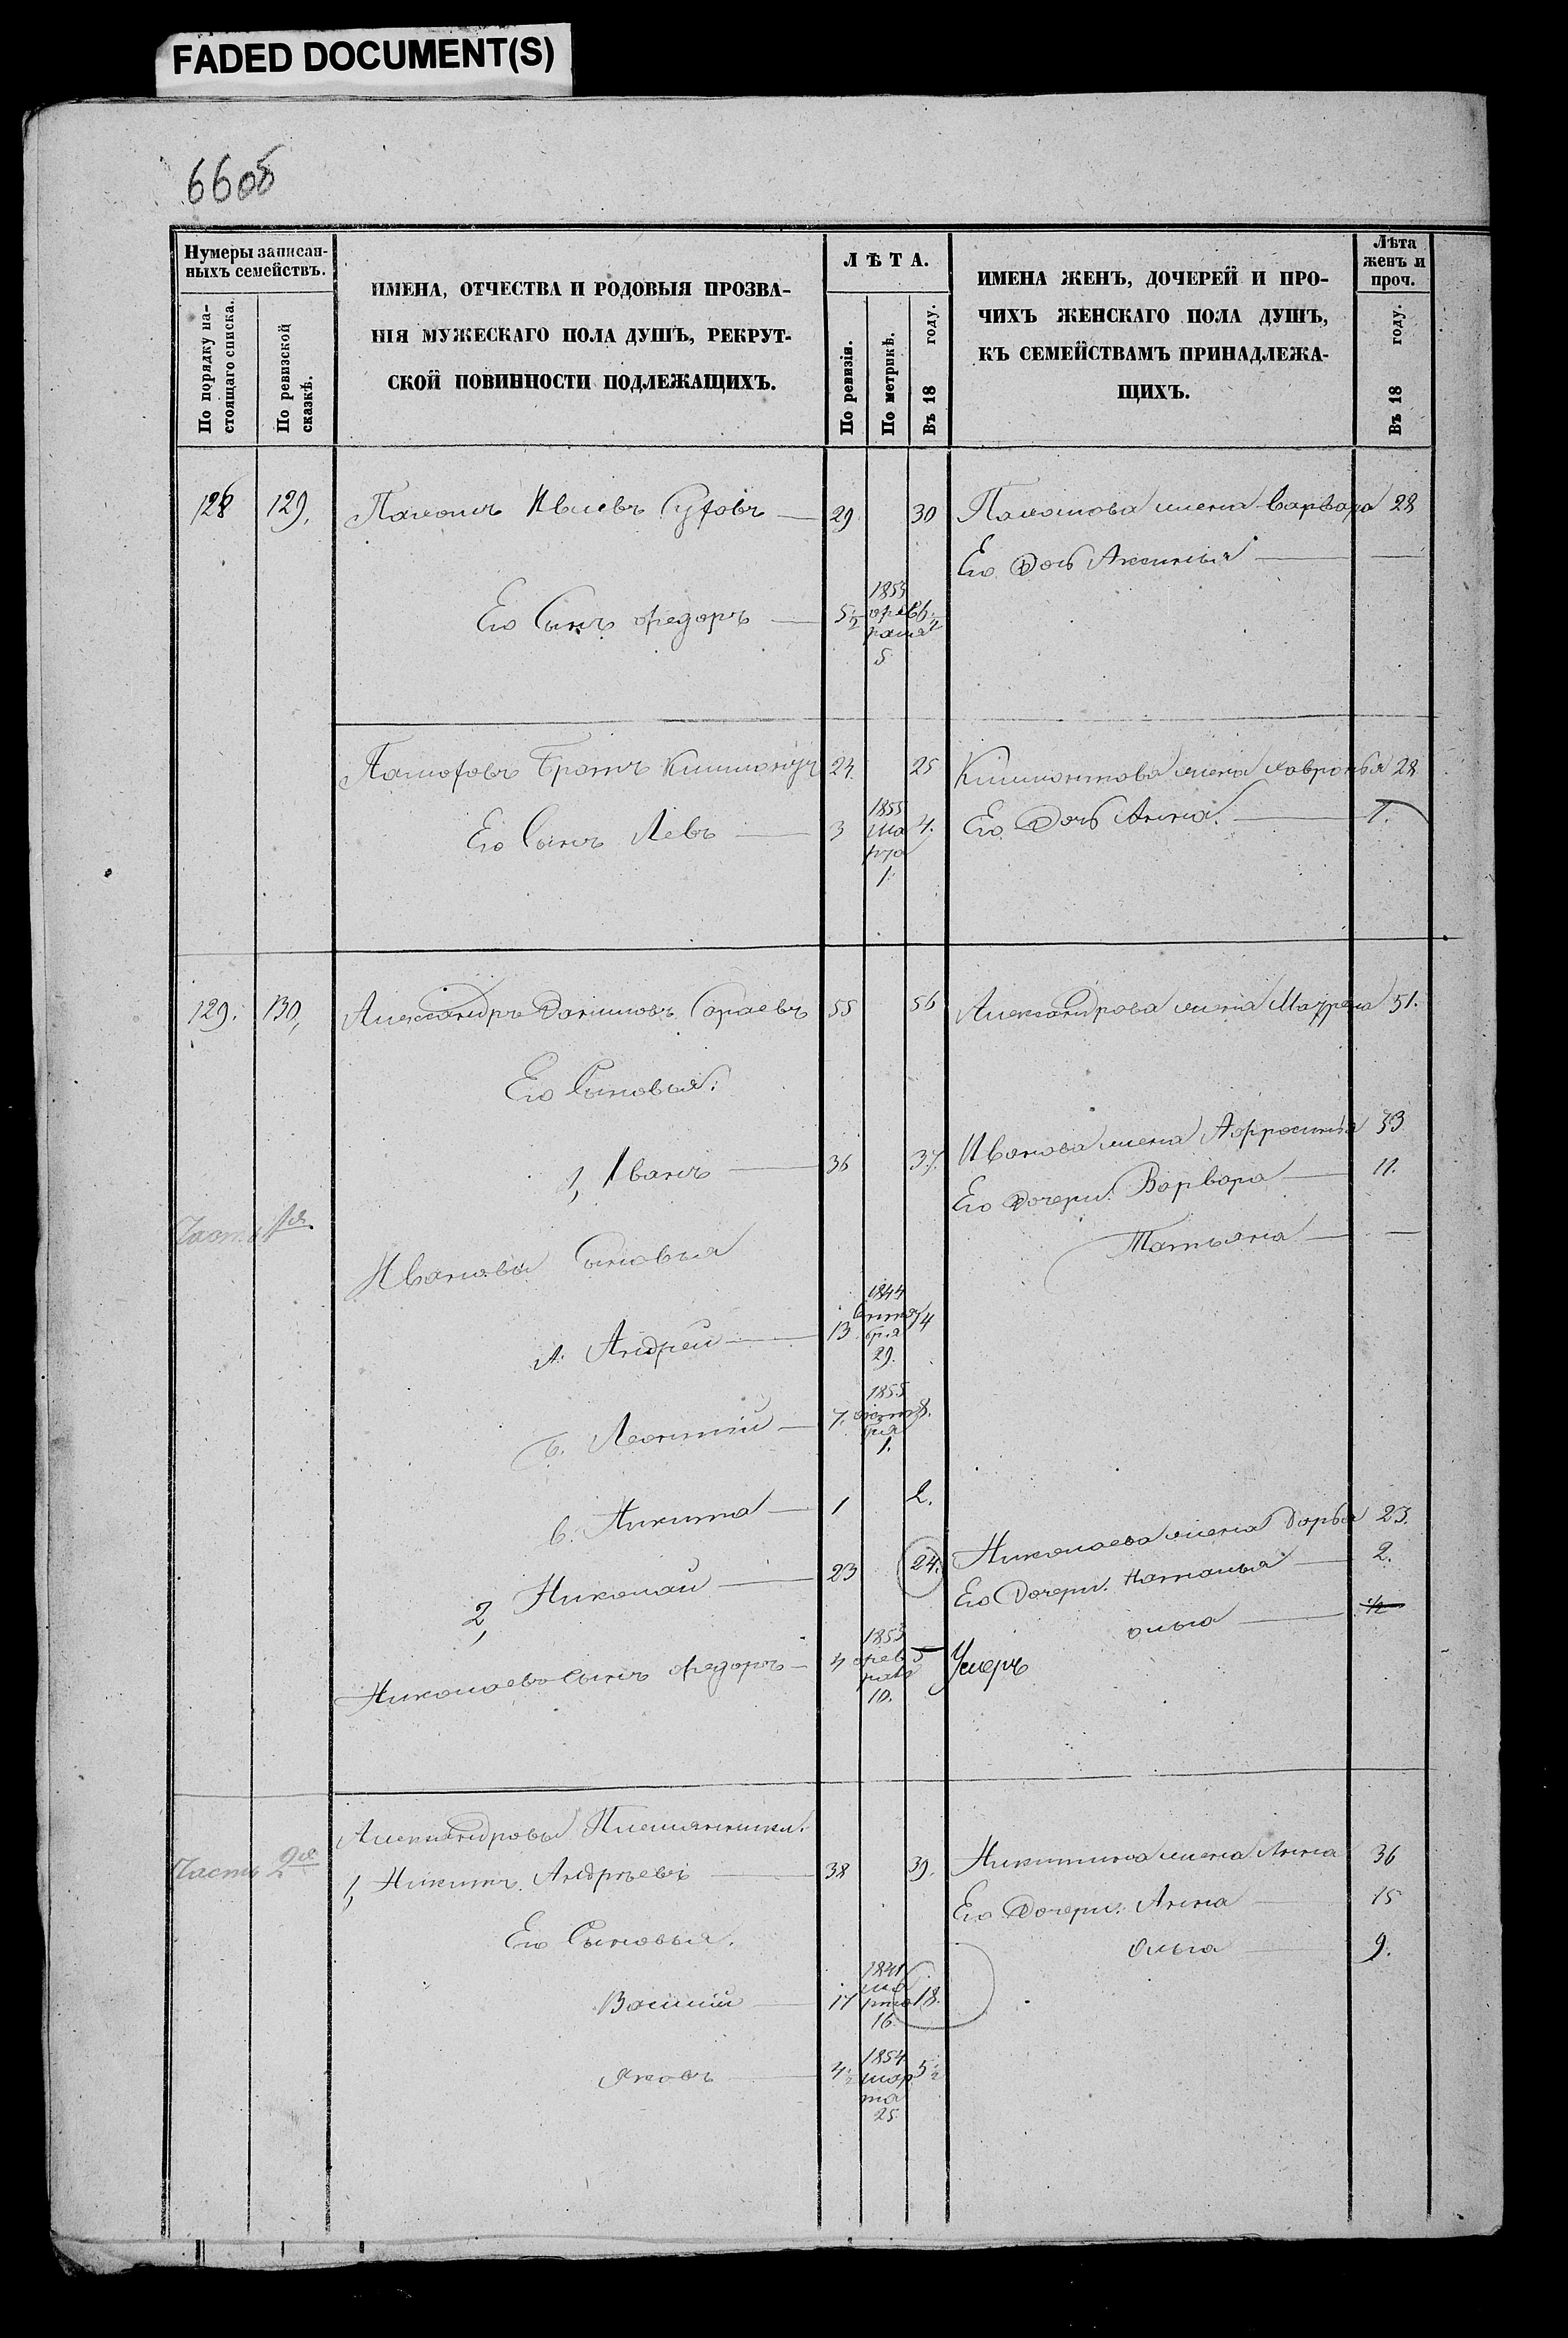 FADED DOCUMENT(S)
66об
Нумеры записан-
ныхъ семействъ.
По порядку на-
стоящаго списка.
По ревизской
сказкѣ.
ИМЕНА, ОТЧЕСТВА И РОДОВЫЯ ПРОЗВА-
НІЯ МУЖЕСКАГО ПОЛА ДУШЪ, РЕКРУТ-
СКОЙ ПОВИННОСТИ ПОДЛЕЖАЩИХЪ.
ЛѢТА.
По ревизіи.
По метрикѣ.
Въ 18 году.
ИМЕНА ЖЕНЪ, ДОЧЕРЕЙ И ПРО-
ЧИХЪ ЖЕНСКАГО ПОЛА ДУШЪ,
КЪ СЕМЕЙСТВАМЪ ПРИНАДЛЕЖА-
ЩИХЪ.
Лѣта
женъ и
проч.
Въ 18 году.
128 129, 29 30 жена Варвара 28
Его Дочь Аксинья —
Его Сынъ Федоръ — 5½ 1853 февраля 5 6½
Братъ 24 25 жена 28
Его Сынъ Левъ — 3 1855 марта 1 4. Его Дочь Анна. — 1.
129. 130, Александръ Даниловъ Сараевъ 55 56 Александрова жена Мавра 51.
Его Сыновья:
1, Иванъ — 36 37. Иванова жена Афросинья 33
Его Дочери: Варвара — 11.
Татьяна — —
Часть 1я.
Ивановы Сыновья
А. Андрей — 13 1844 29. 14
Б. Леонтій — 7. 1855 1. 8.
В. Никита — 1 2.
2, Николай — 23 24. Николаева жена Дарья 23.
Его Дочери: Наталья — 2.
Ольга — ½
Николаевъ сынъ Федоръ — 4 1853 февраля 10. 5 Умеръ
Александровы Племянники.
Часть 2я
1, Никита Андрѣевъ — 38 39. Никитина жена Анна 36
Его Дочери: Анна — 15
Ольга — 9.
Его Сыновья.
Василій — 17 1841 марта 16. 18.
Яковъ — 4½ 1854 марта 25. 5½